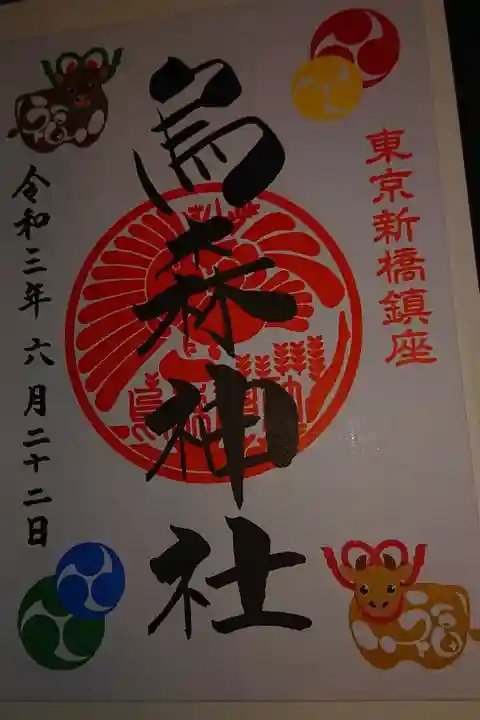 東京新橋鎮座
烏森神社
令和三年六月二十二日